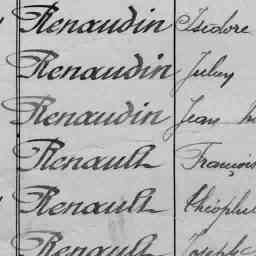 Renaudin Isidore
Renaudin Julien
Renaudin Jean
Renault François
Renault Théophile
Renault Joseph